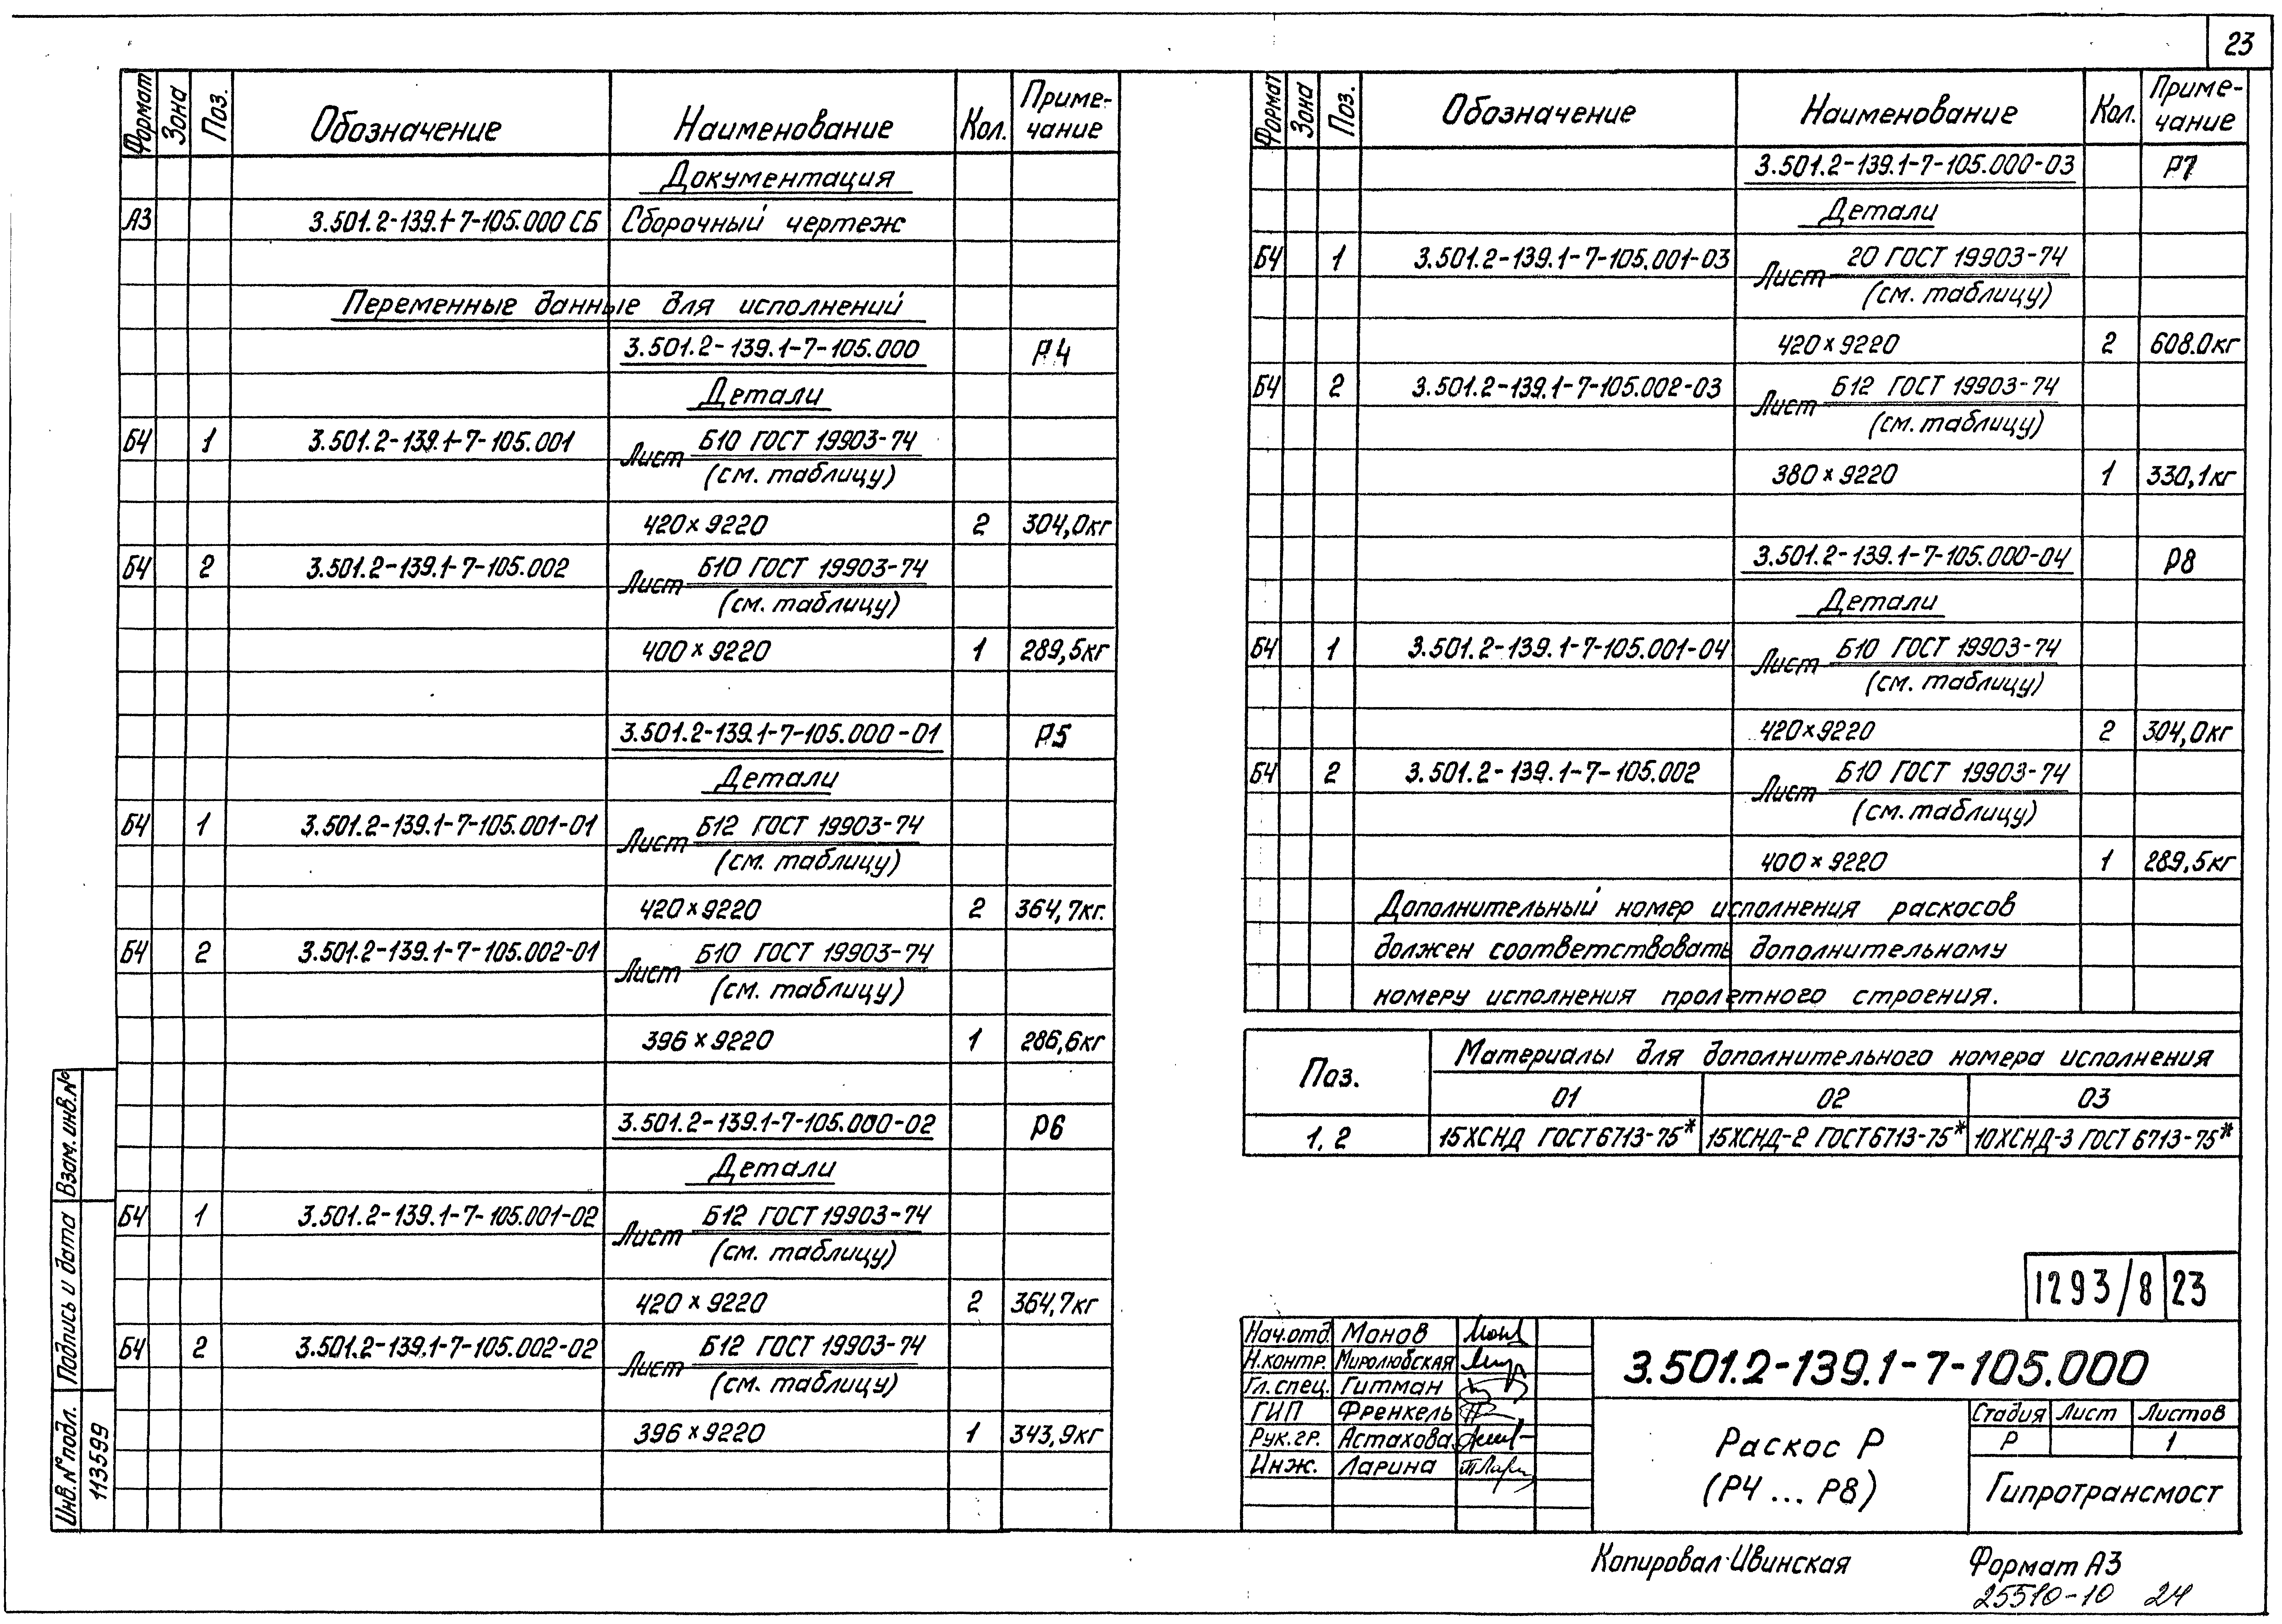 23
Формат Зона Поз. Обозначение Наименование Кол. Приме-
чание
Документация
А3 3.501.2-139.1-7-105.000 СБ Сборочный чертеж
Переменные данные для исполнений
3.501.2-139.1-7-105.000 Р4
Детали
БЧ 1 3.501.2-139.1-7-105.001 Лист Б10 ГОСТ 19903-74
(см. таблицу)
420×9220 2 304,0кг
БЧ 2 3.501.2-139.1-7-105.002 Лист Б10 ГОСТ 19903-74
(см. таблицу)
400×9220 1 289,5кг
3.501.2-139.1-7-105.000-01 Р5
Детали
БЧ 1 3.501.2-139.1-7-105.001-01 Лист Б12 ГОСТ 19903-74
(см. таблицу)
420×9220 2 364,7кг.
БЧ 2 3.501.2-139.1-7-105.002-01 Лист Б10 ГОСТ 19903-74
(см. таблицу)
396×9220 1 286,6кг
3.501.2-139.1-7-105.000-02 Р6
Детали
БЧ 1 3.501.2-139.1-7-105.001-02 Лист Б12 ГОСТ 19903-74
(см. таблицу)
420×9220 2 364,7кг
БЧ 2 3.501.2-139.1-7-105.002-02 Лист Б12 ГОСТ 19903-74
(см. таблицу)
396×9220 1 343,9кг
Формат Зона Поз. Обозначение Наименование Кол. Приме-
чание
3.501.2-139.1-7-105.000-03 Р7
Детали
БЧ 1 3.501.2-139.1-7-105.001-03 Лист 20 ГОСТ 19903-74
(см. таблицу)
420×9220 2 608.0кг
БЧ 2 3.501.2-139.1-7-105.002-03 Лист Б12 ГОСТ 19903-74
(см. таблицу)
380×9220 1 330,1кг
3.501.2-139.1-7-105.000-04 Р8
Детали
БЧ 1 3.501.2-139.1-7-105.001-04 Лист Б10 ГОСТ 19903-74
(см. таблицу)
420×9220 2 304,0кг
БЧ 2 3.501.2-139.1-7-105.002 Лист Б10 ГОСТ 19903-74
(см. таблицу)
400×9220 1 289,5кг
Дополнительный номер исполнения раскосов
должен соответствовать дополнительному
номеру исполнения пролетного строения.
Поз. Материалы для дополнительного номера исполнения
01 02 03
1, 2 15ХСНД ГОСТ6713-75* 15ХСНД-2 ГОСТ6713-75* 10ХСНД-3 ГОСТ 6713-75*
1293/8 23
Нач.отд. Монов
Н.контр. Миролюбская
Гл.спец. Гитман
ГИП Френкель
Рук.гр. Астахова
Инж. Ларина
3.501.2-139.1-7-105.000
Раскос Р
(Р4 ... Р8)
Стадия Лист Листов
Р 1
Гипротрансмост
Взам. инв.№
Подпись и дата
Инв.№подл.
113599
Копировал Ивинская Формат А3
25510-10 24